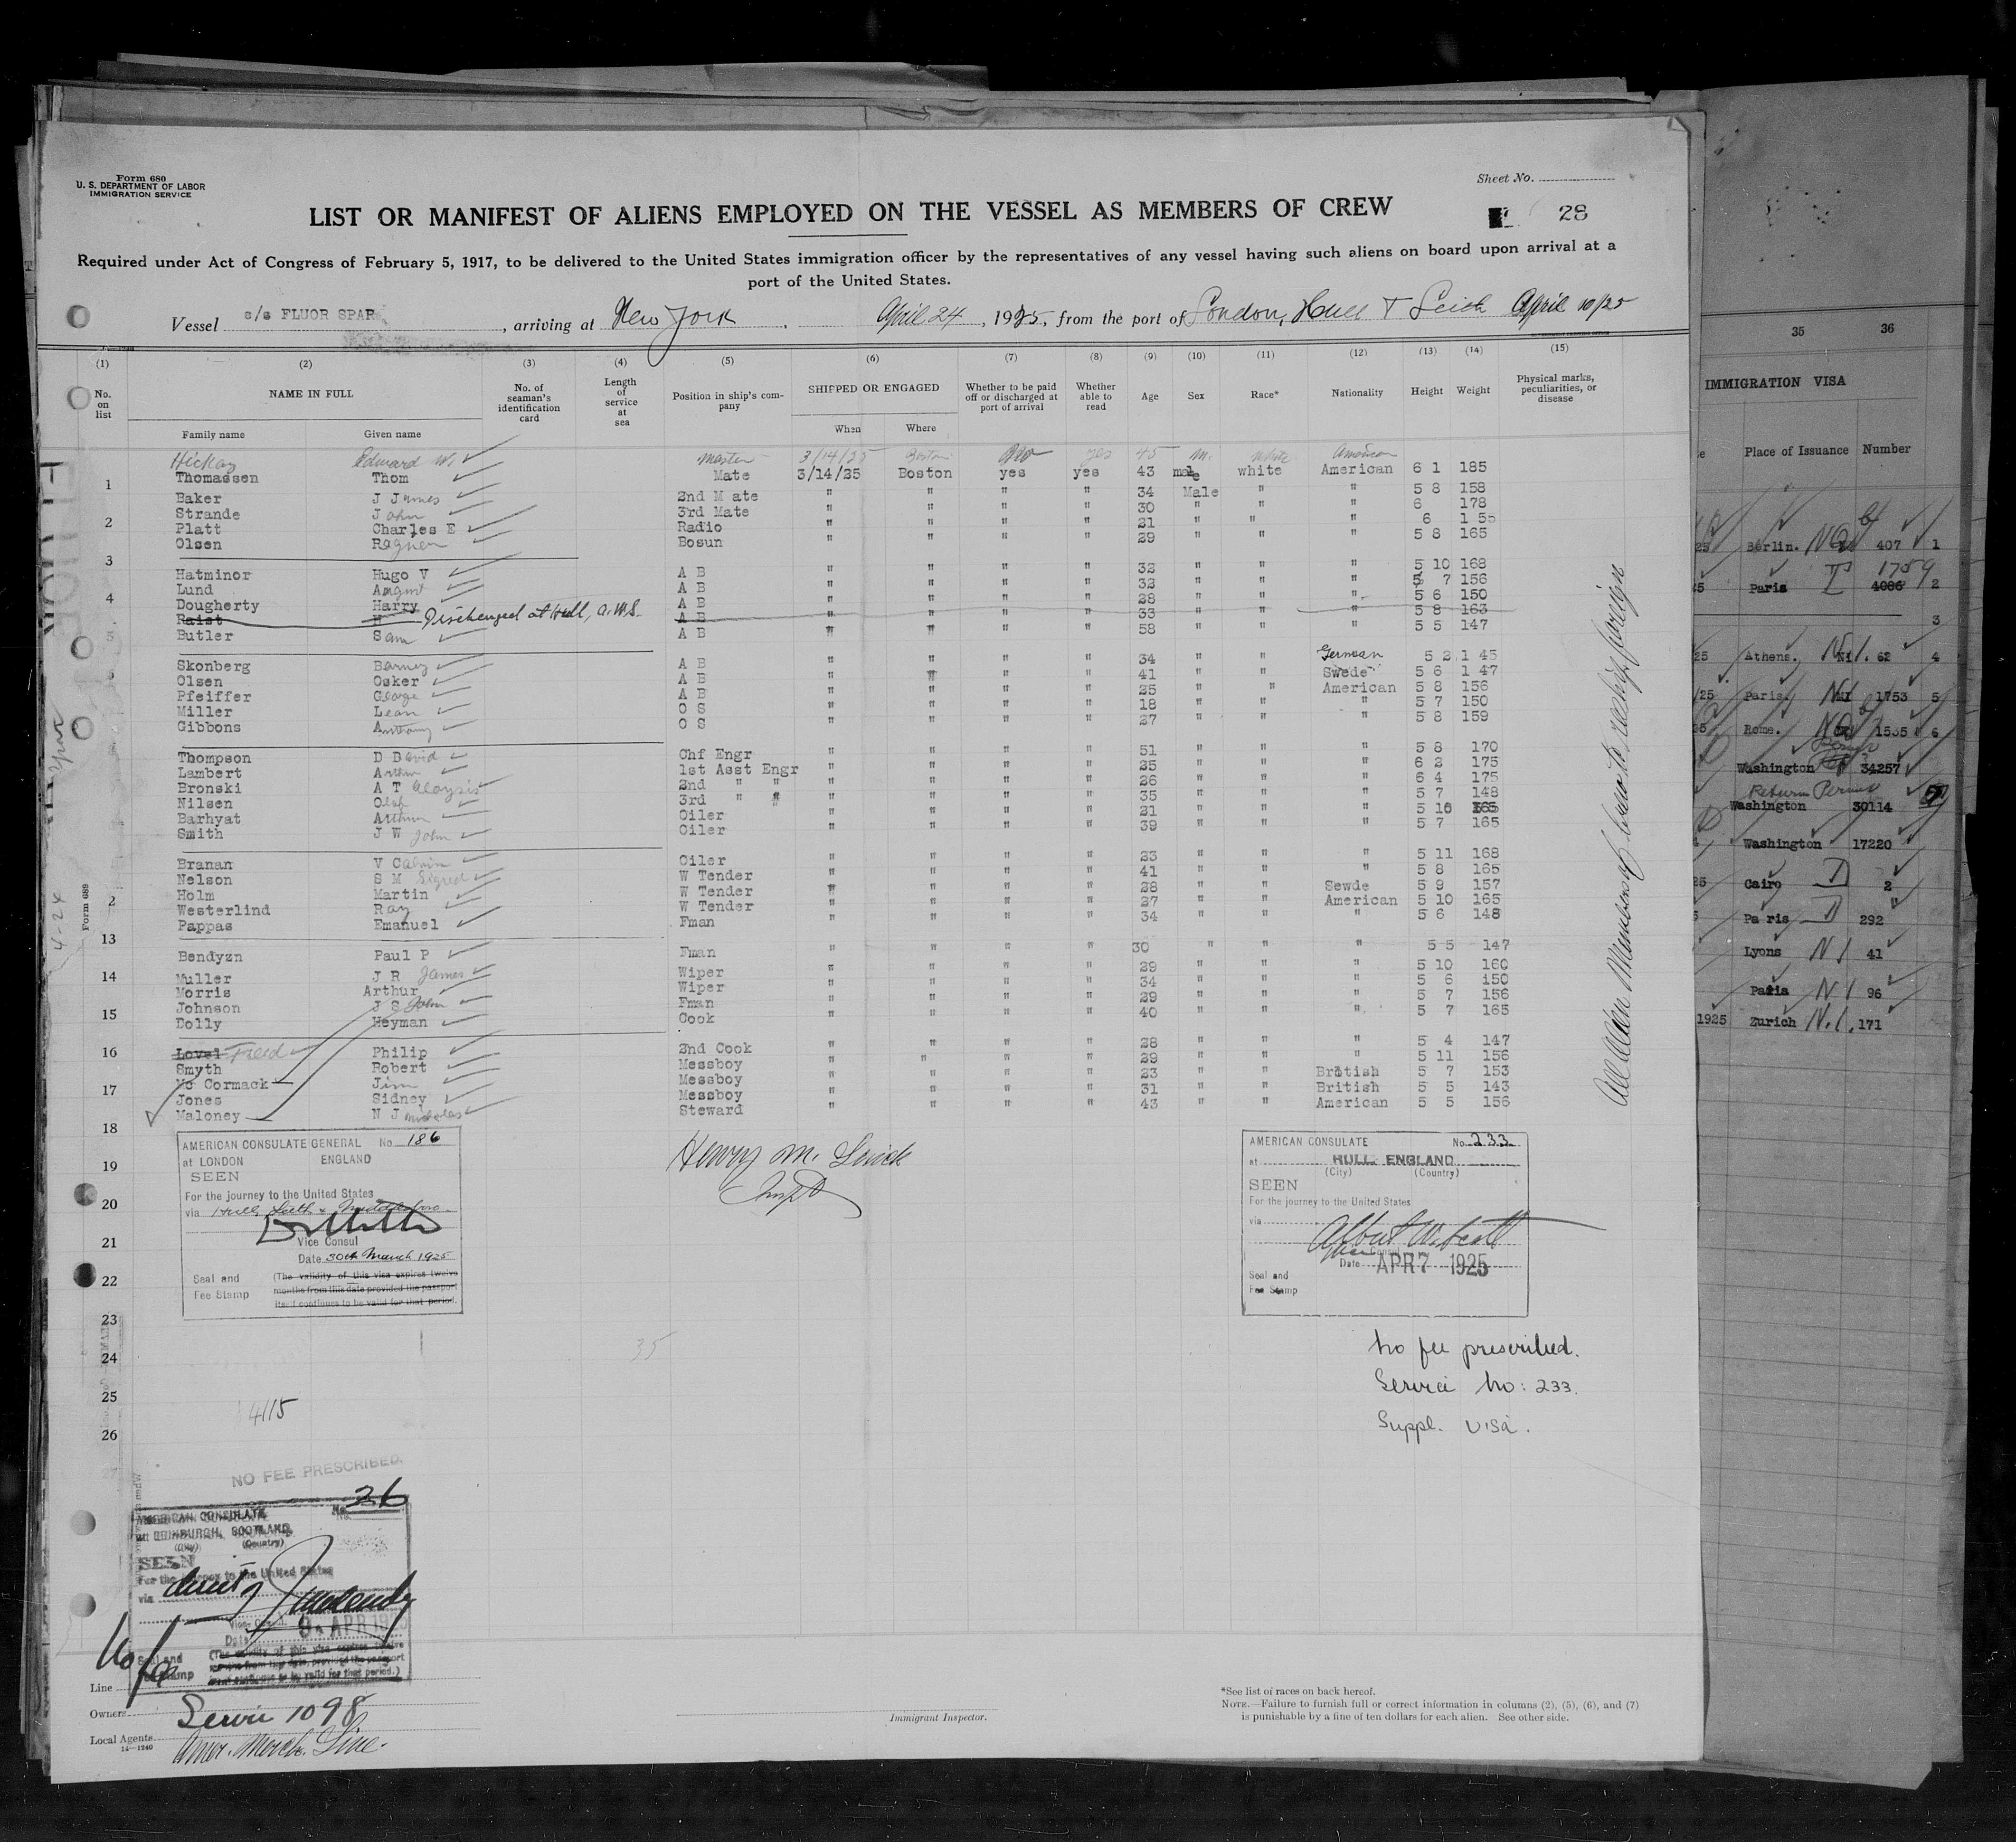 Form 680
U. S. DEPARTMENT OF LABOR
IMMIGRATION SERVICE
Sheet No.
LIST OR MANIFEST OF ALIENS EMPLOYED ON THE VESSEL AS MEMBERS OF CREW
28
Required under Act of Congress of February 5, 1917, to be delivered to the United States immigration officer by the representatives of any vessel having such aliens on board upon arrival at a
port of the United States.
Vessel s/s FLUOR SPAR, arriving at New York, April 24, 1925, from the port of London, Hull & Leith April 10/25
(1) (2) (3) (4) (5) (6) (7) (8) (9) (10) (11) (12) (13) (14) (15)
No. on list NAME IN FULL No. of seaman's identification card Length of service at sea Position in ship's company SHIPPED OR ENGAGED Whether to be paid off or discharged at port of arrival Whether able to read Age Sex Race* Nationality Height Weight Physical marks, peculiarities, or disease
Family name Given name When Where
Hickey Edward W. Master 3/14/25 Boston No yes 45 m. white American
1 Thomassen Thom Mate 3/14/25 Boston yes yes 43 male white American 6 1 185
Baker J James 2nd M ate " " " " 34 Male " " 5 8 158
Strande John 3rd Mate " " " " 30 " " " 6 178
2 Platt Charles E Radio " " " " 21 " " " 6 1 55
Olsen Regner Bosun " " " " 29 " " " 5 8 165
3
Hatminor Hugo V A B " " " " 32 " " " 5 10 168
Lund August A B " " " " 32 " " " 5 7 156
4 Dougherty Harry A B " " " " 28 " " " 5 6 150
Raist H Discharged at Hull, A.W.S. A B " " " " 33 " " " 5 8 163
5 Butler Sam A B " " " " 58 " " " 5 5 147
Skonberg Barney A B " " " " 34 " " German 5 2 1 45
Olsen Osker A B " " " " 41 " " Swede 5 6 1 47
Pfeiffer George A B " " " " 25 " " American 5 8 156
Miller Leon O S " " " " 18 " " " 5 7 150
Gibbons Anthony O S " " " " 27 " " " 5 8 159
Thompson D David Chf Engr " " " " 51 " " " 5 8 170
Lambert Arthur 1st Asst Engr " " " " 25 " " " 6 2 175
Bronski A T Aloysis 2nd " " " " " " 26 " " " 6 4 175
Nilsen Olaf 3rd " " " " " " 35 " " " 5 7 148
Barhyat Arthur Oiler " " " " 21 " " " 5 10 165
Smith J W John Oiler " " " " 39 " " " 5 7 165
Branan V Calvin Oiler " " " " 23 " " " 5 11 168
Nelson S M Sigred W Tender " " " " 41 " " " 5 8 165
Holm Martin W Tender " " " " 28 " " Sewde 5 9 157
2 Westerlind Ray W Tender " " " " 27 " " American 5 10 165
Pappas Emanuel Fman " " " " 34 " " " 5 6 148
13
Bendyzn Paul P Fman " " " " 30 " " " 5 5 147
14 Muller J R James Wiper " " " " 29 " " " 5 10 160
Morris Arthur Wiper " " " " 34 " " " 5 6 150
Johnson J S John Fman " " " " 29 " " " 5 7 156
15 Dolly Heyman Cook " " " " 40 " " " 5 7 165
16 Lovel Freed Philip 2nd Cook " " " " 28 " " " 5 4 147
Smyth Robert Messboy " " " " 29 " " " 5 11 156
Mc Cormack Jim Messboy " " " " 23 " " British 5 7 153
17 Jones Sidney Messboy " " " " 31 " " British 5 5 143
Maloney N J Nicholas Steward " " " " 43 " " American 5 5 156
18
19
20
21
22
23
24
25
26
All Alien Members of Crew to reship foreign
AMERICAN CONSULATE GENERAL No 186
at LONDON ENGLAND
SEEN
For the journey to the United States
via Hull, Leith & Middlesbro
Vice Consul
Date 30th March 1925
Seal and Fee Stamp
(The validity of this visa expires twelve
months from this date provided the passport
itself continues to be valid for that period.
Henry M.
AMERICAN CONSULATE No. 233
at HULL ENGLAND
(City) (Country)
SEEN
For the journey to the United States
via
Albert W. Scott
Vice Consul
Date APR 7 1925
Seal and
Fee Stamp
No fee prescribed.
Service No: 233.
Suppl. Visa.
35
4115
NO FEE PRESCRIBED.
AMERICAN CONSULATE No. 26
at EDINBURGH, SCOTLAND,
(City) (Country)
SEEN
For the journey to the United States
via direct
Vice Consul
Date 9 APR 1925
Seal and
Fee Stamp
(The validity of this visa expires twelve
months from this date, provided the passport
itself continues to be valid for that period.)
No fee
Line
Owners
Service 1098
Local Agents
Amer. Merch. Line.
14—1240
Immigrant Inspector.
*See list of races on back hereof.
NOTE.—Failure to furnish full or correct information in columns (2), (5), (6), and (7)
is punishable by a fine of ten dollars for each alien. See other side.
Form 689
4-24
35 36
IMMIGRATION VISA
Place of Issuance Number
25 Berlin. 407 1
25 Paris 4086 1759 2
3
25 Athens. 62 4
/25 Paris. 1753 5
25 Rome. 1535 6
Washington 34257
Return Permit
Washington 30114
Washington 17220
25 Cairo 2
Paris 292
Lyons N1 41
Paris N1 96
1925 Zurich N.1. 171